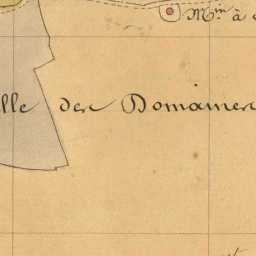 Mᵐ à
lle des Domaines